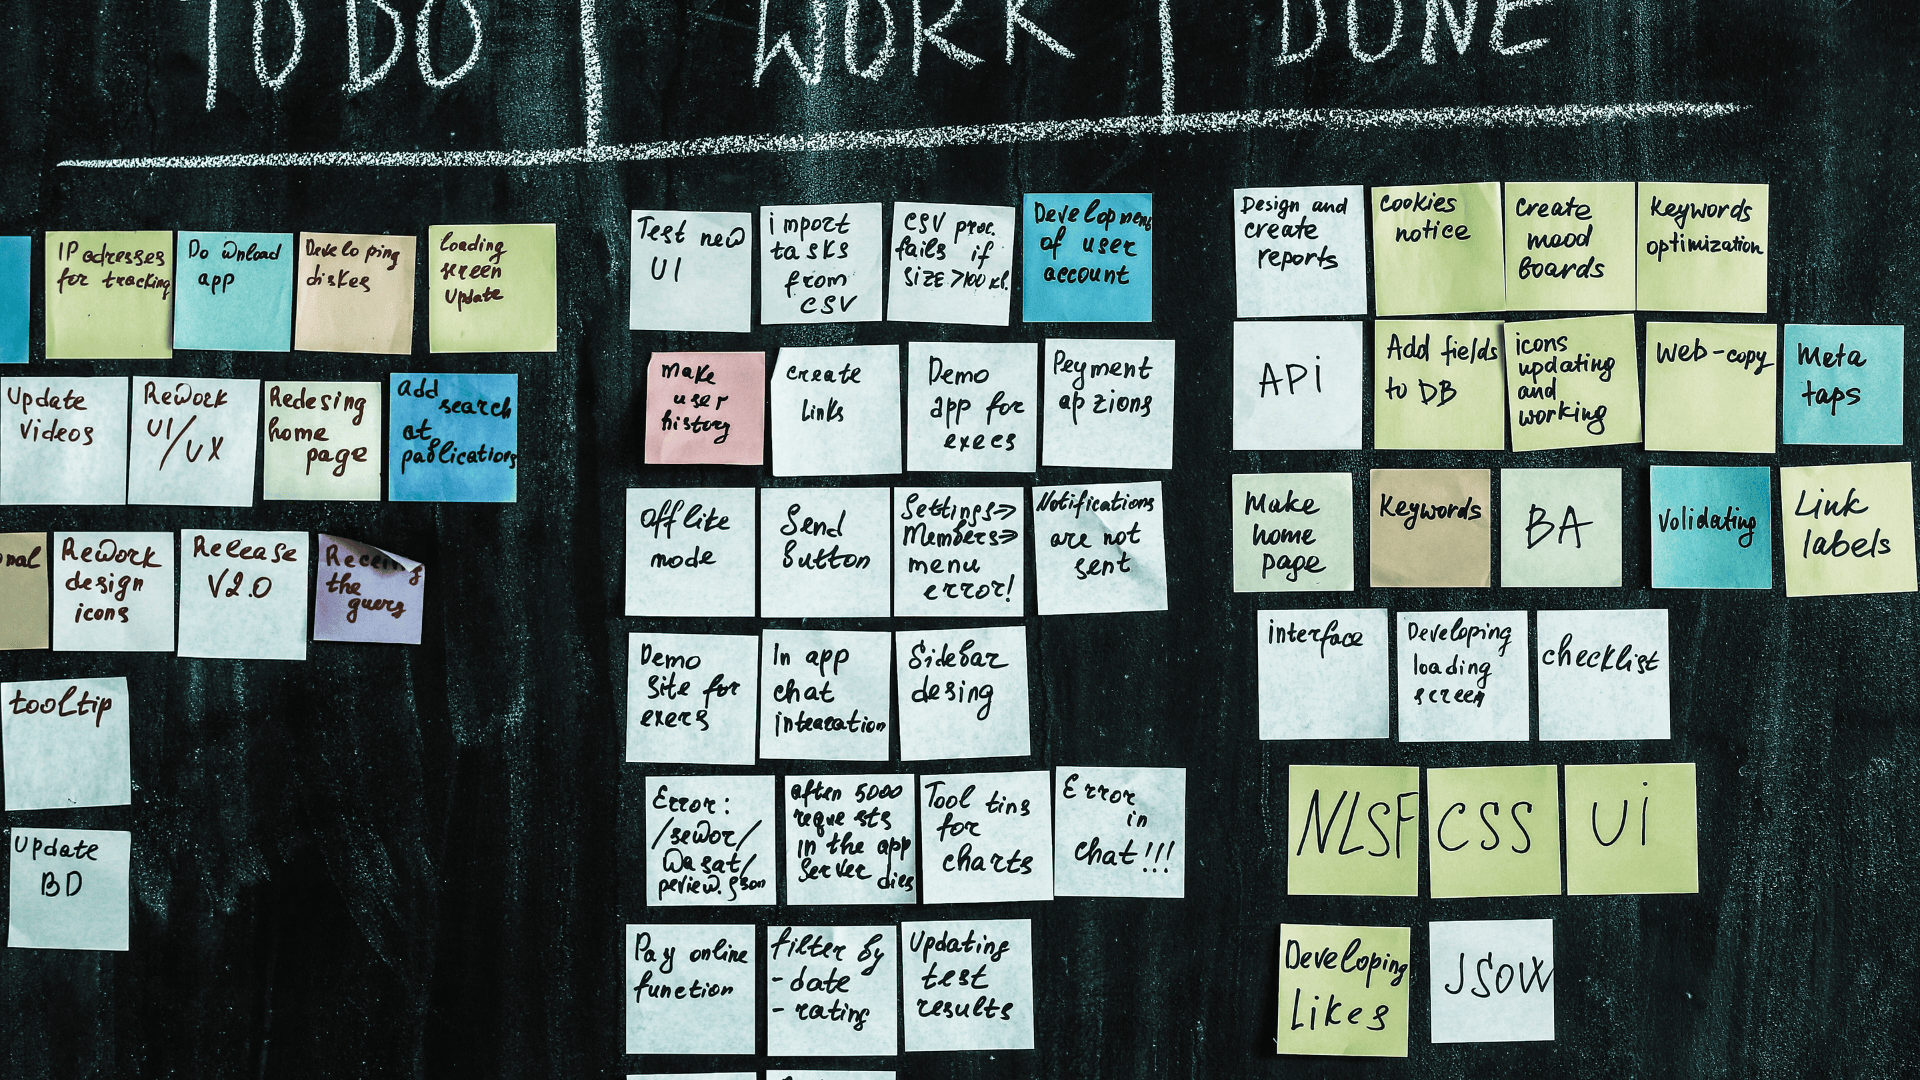 TO DO
WORK
DONE
IP adresses
for tracking
Download
app
Developing
diskes
loading
screen
Update
Update
Videos
ReWork
UI/UX
Redesing
home
page
add
search
at
publications
nal
ReWork
design
icons
Release
V2.0
the
tooltip
Update
BD
Test new
UI
import
tasks
from
CSV
CSV proc.
fails if
SIZE >100
Development
of user
account
Make
user
history
create
Links
Demo
app for
execs
Peyment
ap zions
offlike
mode
Send
Button
Settings=>
Members=>
menu
error!
Notifications
are not
sent
Demo
Site for
exers
In app
chat
Sidebar
desing
Error:
/sewor/
Wasat/
after 5000
requests
in the app
Server dies
Tool tins
for
charts
Error
in
chat!!!
Pay online
function
filter by
- date
- rating
Updating
test
results
Design and
create
reports
cookies
notice
create
mood
boards
Keywords
optimization
API
Add fields
to DB
icons
updating
and
working
Web-copy
Meta
taps
Make
home
page
Keywords
BA
Validating
Link
labels
interface
Developing
loading
screen
checklist
NLSF
CSS
Ui
Developing
Likes
JSOW